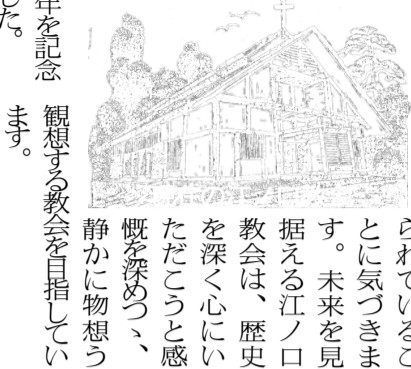 られているこ
とに気づきま
す。未来を見
据える江ノ口
教会は、歴史
を深く心にい
ただこうと感
慨を深めつゝ、
静かに物想う
観想する教会を目指してい
ます。
年を記念
した。